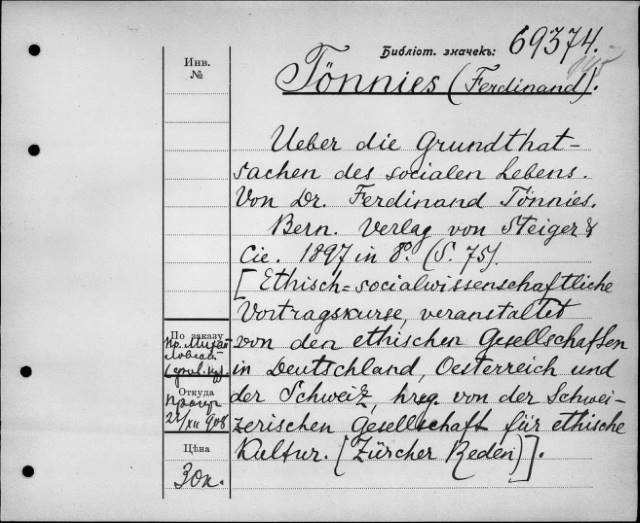 Библіот. значекъ: 69374.
Инв.
№
Tönnies (Ferdinand).
Ueber die Grundthat-
sachen des socialen Lebens.
Von Dr. Ferdinand Tönnies.
Bern. Verlag von Steiger &
Cie. 1897 in 8º. (S. 75).
[Ethisch=socialwissenschaftliche
Vortragskurse, veranstaltet
von den ethischen Gesellschaften
in Deutschland, Oesterreich und
der Schweiz, hrsg. von der Schwei-
zerischen Gesellschaft für ethische
Kultur. [Zürcher Reden)].
По заказу
Откуда
22/XII 908
Цѣна
30к.